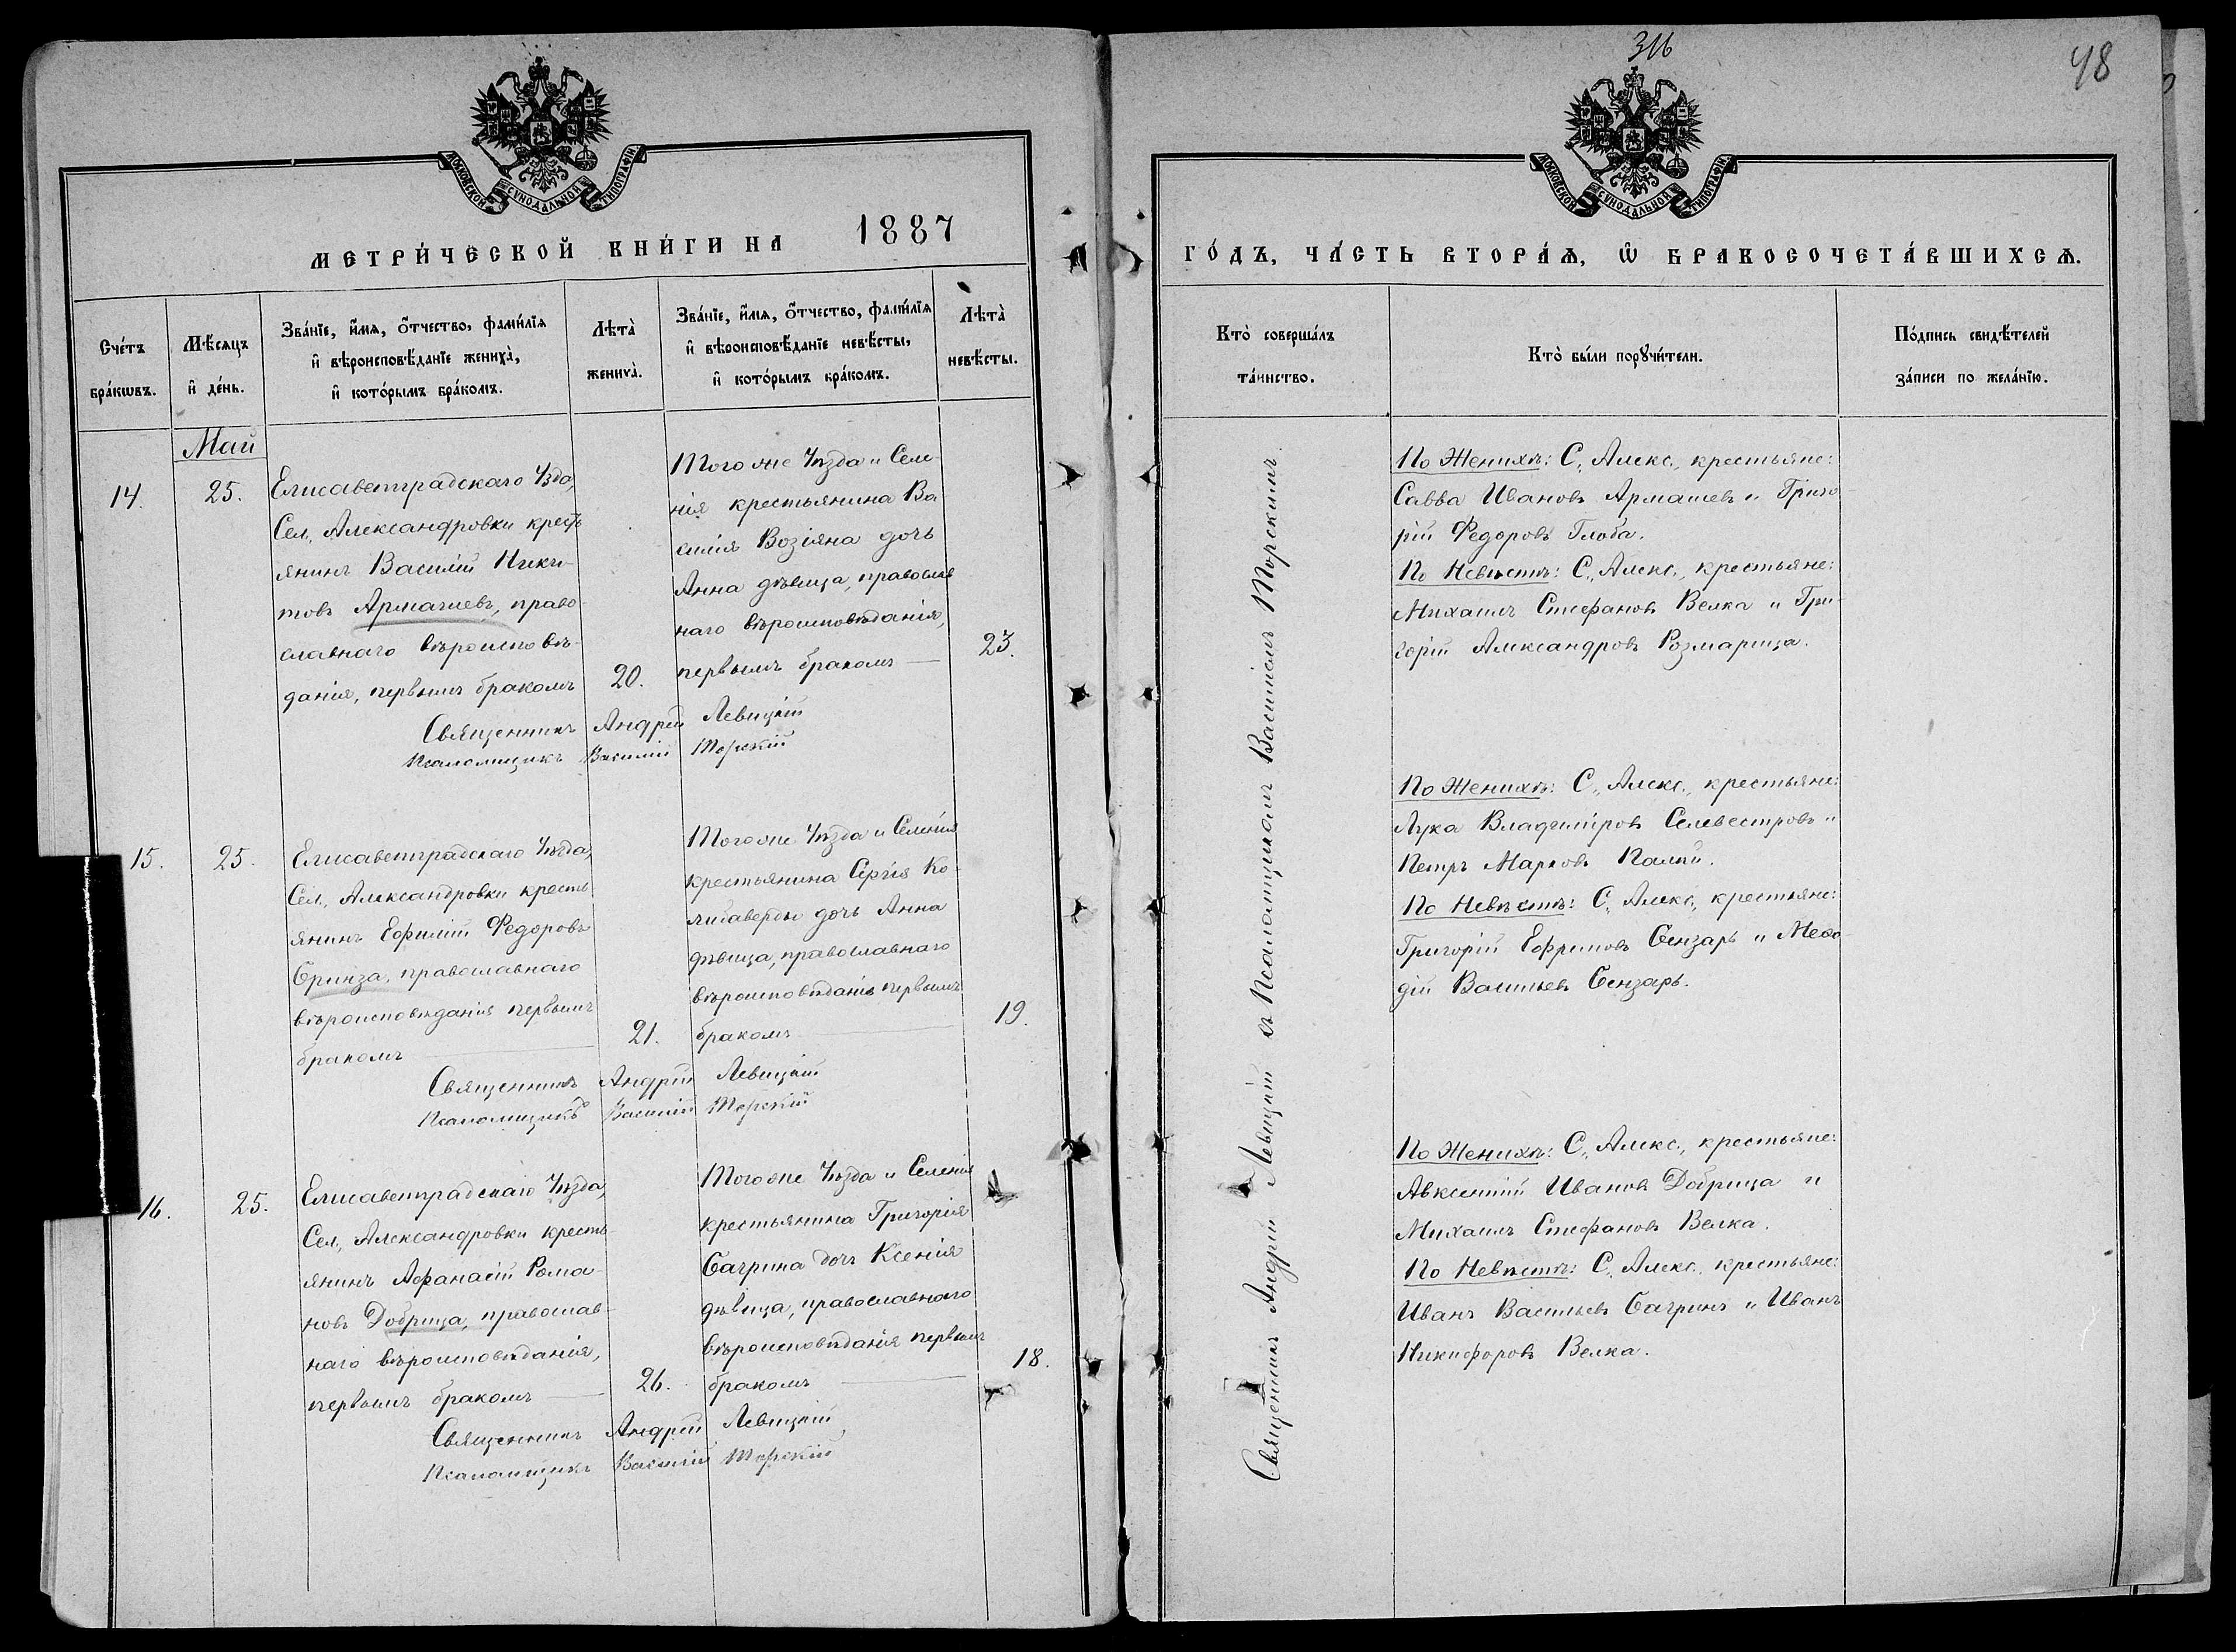 316
48
МОСКОВСКОЙ СУНОДАЛЬНОЙ ТИПОГРАФІИ.
МОСКОВСКОЙ СУНОДАЛЬНОЙ ТИПОГРАФІИ.
МЕТРИ́ЧЕСКОЙ КНИ́ГИ НА 1887
ГО́ДЪ, ЧА́СТЬ ВТОРА́Ѧ, Ѽ БРАКОСОЧЕТА́ВШИХСѦ.
Сче́тъ
бра́кѡвъ.
Мѣ́сяцъ
и҆ де́нь.
Зва́нїе, и҆́мѧ, ѻ҆́тчество, фами́лїѧ
и҆ вѣроисповѣ́данїе жениха̀,
и҆ кото́рымъ бра́комъ.
Лѣта̀
жениха̀.
Зва́нїе, и҆́мѧ, ѻ҆́тчество, фами́лїѧ
и҆ вѣроисповѣ́данїе невѣ́сты,
и҆ кото́рымъ бра́комъ.
Лѣта̀
невѣ́сты.
Кто̀ соверша́лъ
та́инство.
Кто̀ бы́ли порꙋчи́тели.
По́дпись свидѣ́телей
за́писи по жела́нїю.
Май
14.
25.
Елисаветградскаго Узда,
Сел. Александровки кресть
янинъ Василій Ники-
товъ Армашевъ, право-
славнаго вѣроисповѣ-
данія, первымъ бракомъ
20.
Того же Уѣзда и Селе-
нія крестьянина Ва
силія Возіяна дочь
Анна дѣвица, православ
наго вѣроисповѣданія,
первымъ бракомъ —
23.
Священникъ Андрей Левицкій
Псаломщикъ Василій Торскій
По Женихѣ: С. Алекс. крестьяне:
Савва Ивановъ Армашевъ и Григо
рій Федоровъ Глоба.
По Невѣстѣ: С. Алекс. крестьяне:
Михаилъ Стефановъ Велка и Гри-
горій Александровъ Розмарица.
15.
25.
Елисаветградскаго Уѣзда,
Сел. Александровки кресть
янинъ Ефимій Федоровъ
Бринза, православнаго
вѣроисповѣданія первымъ
бракомъ —
21.
Того же Уѣзда и Селенія
крестьянина Сергія Ко-
либаверды дочь Анна
дѣвица, православнаго
вѣроисповѣданія первымъ
бракомъ —
19.
Священникъ Андрей Левицкій
Псаломщикъ Василій Торскій
По Женихѣ: С. Алекс. крестьяне:
Лука Владиміровъ Селевестровъ и
Петръ Марковъ Палій.
По Невѣстѣ: С. Алекс. крестьяне:
Григорій Ефримовъ Бензарь и Мефо
дій Васильевъ Бензарь.
16.
25.
Елисаветградскаго Уѣзда,
Сел. Александровки кресть
янинъ Афанасій Рома-
новъ Добрица, православ-
наго вѣроисповѣданія,
первымъ бракомъ —
26.
Того же Уѣзда и Селенія
крестьянина Григорія
Багрина дочь Ксенія
дѣвица, православнаго
вѣроисповѣданія первымъ
бракомъ —
18.
Священникъ Андрей Левицкій
Псаломщикъ Василій Торскій
По Женихѣ: С. Алекс. крестьяне:
Авксентій Ивановъ Добрица и
Михаилъ Стефановъ Велка.
По Невѣстѣ: С. Алекс. крестьяне:
Иванъ Васильевъ Багринъ и Иванъ
Никифоровъ Велка.
Священникъ Андрей Левицкій съ Псаломщикомъ Василіемъ Торскимъ.